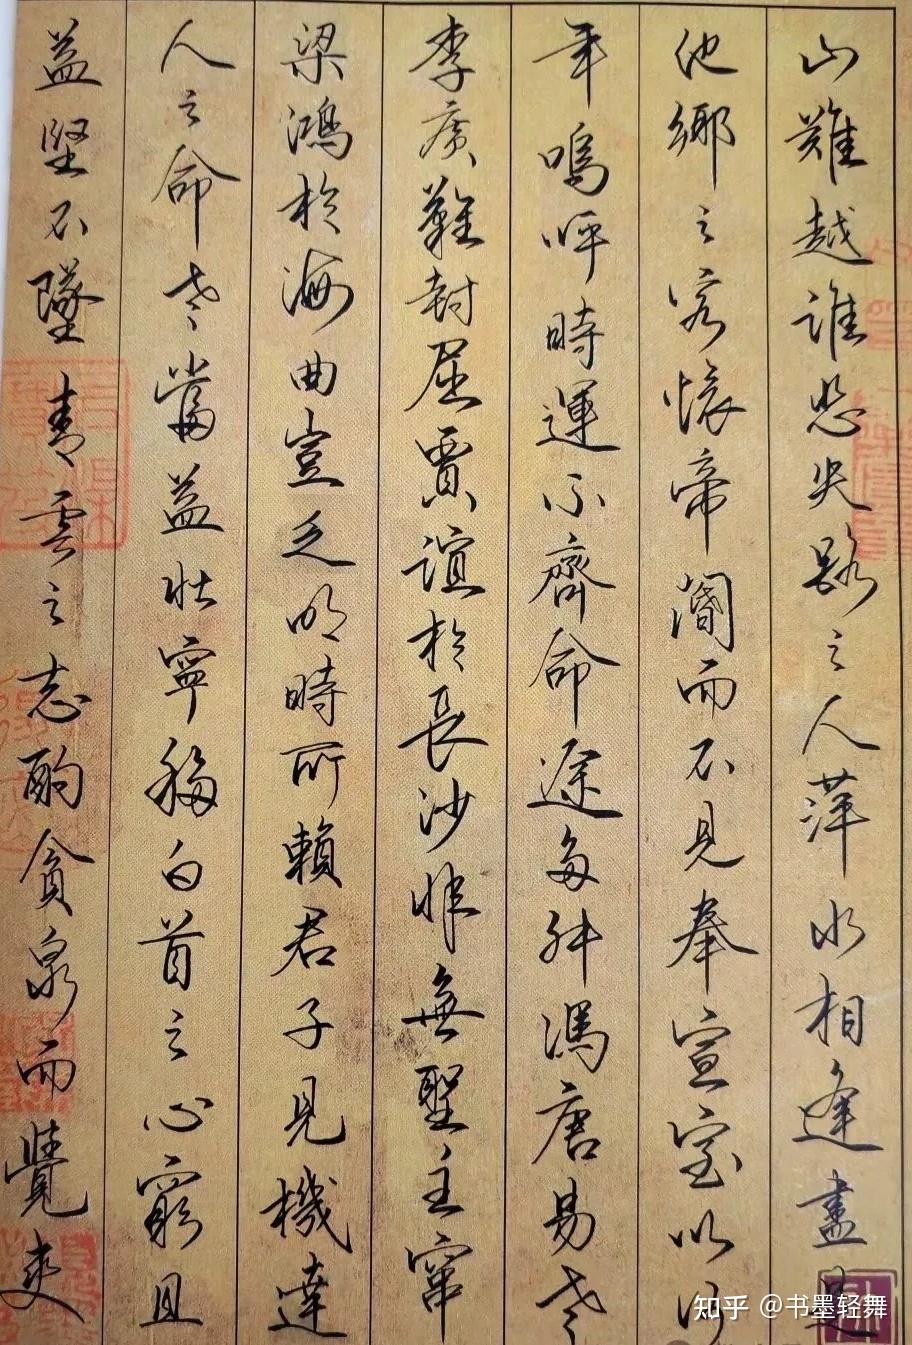 山難越誰悲失路之人萍水相逢盡是
他鄉之客懷帝閽而不見奉宣室以何
年嗚呼時運不齊命途多舛馮唐易老
李廣難封屈賈誼於長沙非無聖主竄
梁鴻於海曲豈乏明時所賴君子見機達
人之命老當益壯寧移白首之心窮且
益堅不墜青雲之志酌貪泉而覺爽
知乎 @书墨轻舞